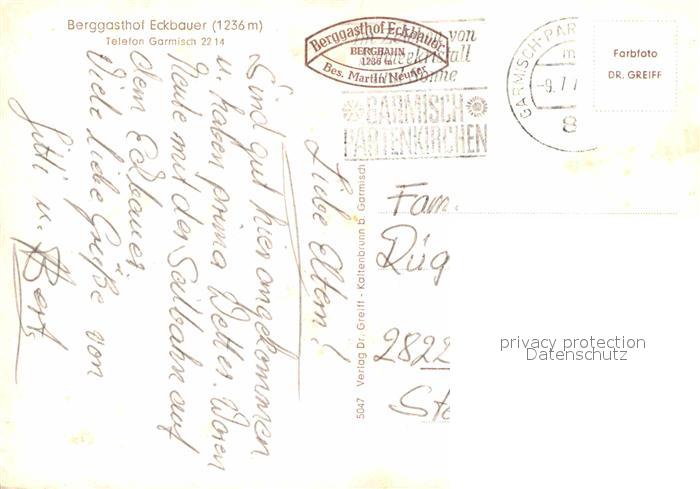 Berggasthof Eckbauer (1236 m)
Telefon Garmisch 22 14
Liebe Eltern!
Sind gut hier angekommen
u. haben prima Wetter. Waren
heute mit der Seilbahn auf
dem Eckbauer
Viele liebe Grüße von
Gitti u. Bert
Berggasthof Eckbauer
BERGBAHN
1236 m
Bes. Martin Neuner
von
GARMISCH
PARTENKIRCHEN
GARMISCH-PAR
-9.7.7
8
Farbfoto
DR. GREIFF
5047 Verlag Dr. Greiff - Kaltenbrunn b. Garmisch
Fam.
Rüg
2822
privacy protection
Datenschutz